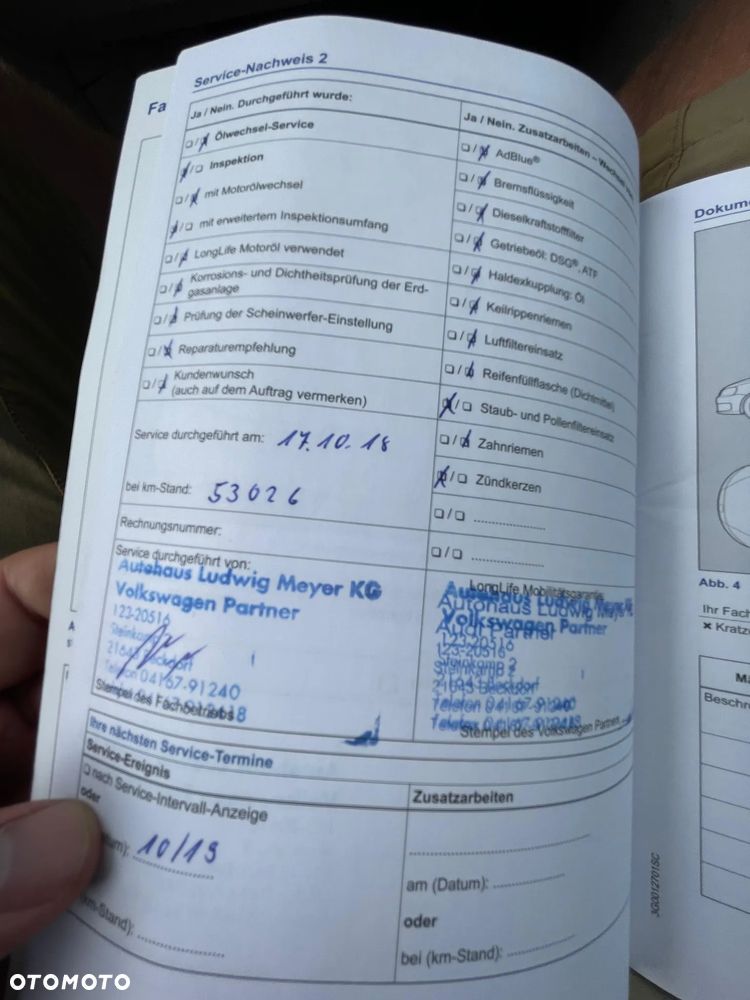 Service-Nachweis 2
Ja / Nein. Durchgeführt wurde:
☐/☒ Ölwechsel-Service
☒/☐ Inspektion
☐/☒ mit Motorölwechsel
☒/☐ mit erweitertem Inspektionsumfang
☐/☒ LongLife Motoröl verwendet
☐/☒ Korrosions- und Dichtheitsprüfung der Erd-
gasanlage
☐/☒ Prüfung der Scheinwerfer-Einstellung
☐/☒ Reparaturempfehlung
☐/☒ Kundenwunsch
(auch auf dem Auftrag vermerken)
Service durchgeführt am: 17.10.18
bei km-Stand: 53026
Rechnungsnummer:
Service durchgeführt von:
Autohaus Ludwig Meyer KG
Volkswagen Partner
123-20516
Telefon 04167-91240
Stempel des Fachbetriebs
Ja / Nein. Zusatzarbeiten –
☐/☒ AdBlue®
☐/☒ Bremsflüssigkeit
☐/☒ Dieselkraftstofffilter
☐/☒ Getriebeöl: DSG®, ATF
☐/☒ Haldexkupplung: Öl
☐/☒ Keilrippenriemen
☐/☒ Luftfiltereinsatz
☐/☒ Reifenfüllflasche (Dichtmittel)
☒/☐ Staub- und Pollenfiltereinsatz
☐/☒ Zahnriemen
☒/☐ Zündkerzen
☐/☐ ....................
☐/☐ ....................
LongLife Mobilitätsgarantie
Autohaus Ludwig Meyer
Volkswagen Partner
Audi Partner
123-20516
Steinkamp 2
Stempel des Volkswagen Partners
Ihre nächsten Service-Termine
Service-Ereignis
☐ nach Service-Intervall-Anzeige
oder
10/19
Zusatzarbeiten
....................
am (Datum): ....................
oder
bei (km-Stand): ....................
Fa
Abb. 4
Ihr Fach
× Kratz
Beschr
3G0012701SC
OTOMOTO